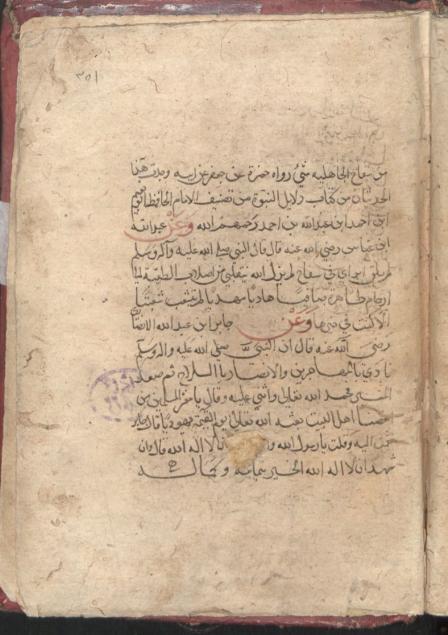 ٣٥١
من سفاح الجاهلية شي رواه حمزة عن جعفر عن ابيه وجدت هذا
الحديثان من كتاب دلايل النبوة من تصنيف الامام الحافظ ابو نعيم
ابن احمد ابن عبد الله بن احمد رحمهم الله وعن عبد الله
ابن عباس رضي الله عنه قال قال النبي صلى الله عليه وآله وسلم
لم يلتق ابواي في سفاح لم يزل الله ينقلني من اصلاب الطيبة الى
ارحام طاهرة صافيا هاديا مهديا لم يتشعب شعبتا
الا كنت في خيرها وعن جابر ابن عبد الله الانصا
رضي الله عنه قال ان النبي صلى الله عليه واله وسلم
نادى المهاجرين والانصار بالسلاح ثم صعد
المنبر فحمد الله تعالى واثنى عليه وقال يا معشر المسلمين من
ابغضنا اهل البيت بعثه الله تعالى يوم القيمة يهوديا قال جابر
فقمت اليه وقلت يا رسول الله وان لا اله الا الله قال وان
شهد ان لا اله الا الله وقال